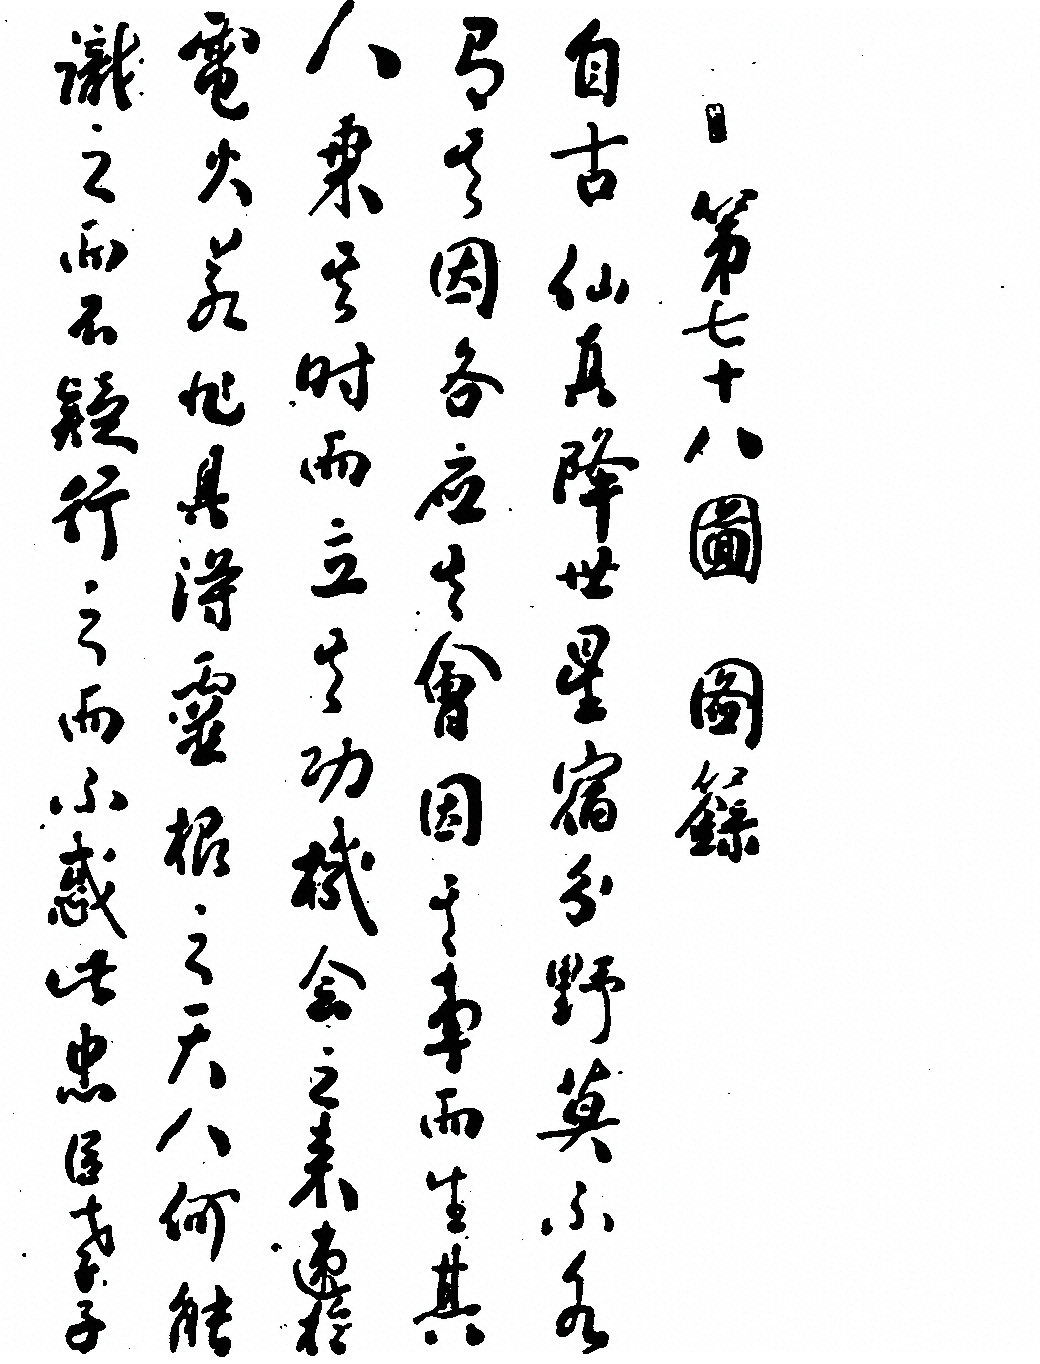 第七十八圖 圖籙
自古仙真降世星宿分野莫不各
有其因各应其會因其事而生其
人乘其时而立其功機会之来速於
電火若非具得靈根之天人何能
識之而不疑行之而不惑此忠臣孝子